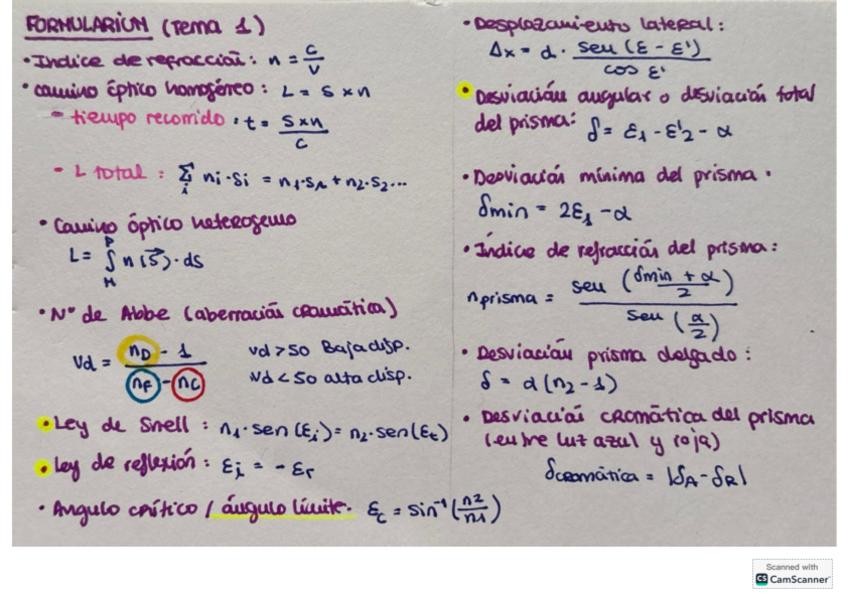 FORMULARIUM (Tema 1)
• Indice de refracción: n = c/v
• Camino óptico homogéneo: L = s × n
- tiempo recorrido: t = s×n/c
- L total: Σi ni·si = n1·s1 + n2·s2...
• Camino óptico heterogeneo
L = ∫ₘᴾ n(s⃗)·ds
• Nº de Abbe (aberración cromática)
Vd = (nD - 1)/(nF - nC)
vd > 50 Baja disp.
Vd < 50 alta disp.
• Ley de Snell: n1·sen(εi) = n2·sen(εt)
• Ley de reflexión: εi = -εr
• Angulo crítico / ángulo límite. εc = sin⁻¹(n2/n1)
• Desplazamiento lateral:
Δx = d · sen (ε - ε')/cos ε'
• Desviación angular o desviación total
del prisma: δ = ε1 - ε'2 - α
• Desviación mínima del prisma.
δmin = 2ε1 - α
• Índice de refracción del prisma:
nprisma = sen (δmin + α/2)/sen (α/2)
• Desviación prisma delgado:
δ = α(n2 - 1)
• Desviación cromática del prisma
(entre luz azul y roja)
δcromática = |δA - δR|
Scanned with
CS CamScanner